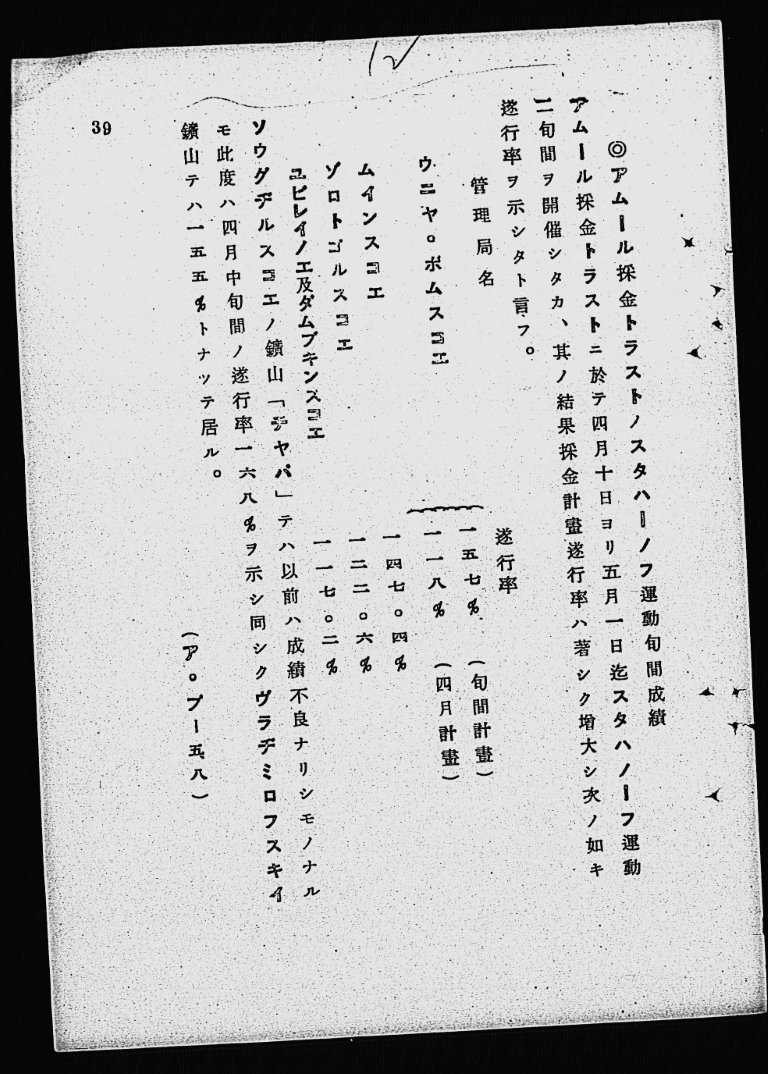 ◎アムール採金トラストノスタハーノフ運動旬間成績
アムール採金トラストニ於テ四月十日ヨリ五月一日迄スタハノーフ運動
二旬間ヲ開催シタカ、其ノ結果採金計畫遂行率ハ著シク增大シ次ノ如キ
遂行率ヲ示シタト言フ。
管理局名 遂行率
ウニヤ。ボムスコエ 一五七% (旬間計畫)
一一八% (四月計畫)
ムインスコエ 一四七。四%
ゾロトゴルスコエ 一二二。六%
ユビレイノエ及ダムブキンスコエ 一一七。二%
ソウグヂルスコエノ鑛山「チヤパ」テハ以前ハ成績不良ナリシモノナル
モ此度ハ四月中旬間ノ遂行率一六八%ヲ示シ同シクヴラヂミロフスキイ
鑛山テハ一五五%トナツテ居ル。
(ア。プー五、八)
39